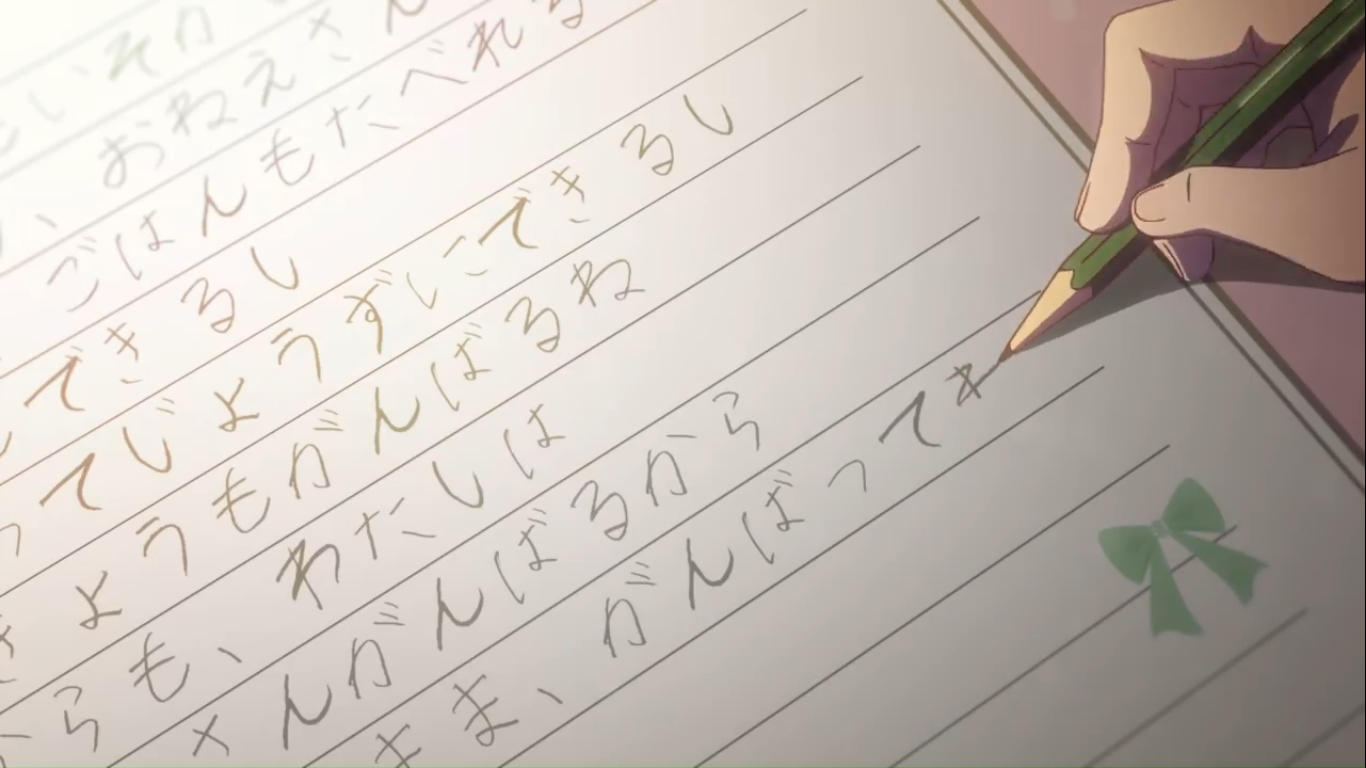 、おねえさん
ごはんもたべれる
できるし
ってじょうずにできるし
きょうもがんばるね
からも、わたしは
さんがんばるから
さま、がんばって